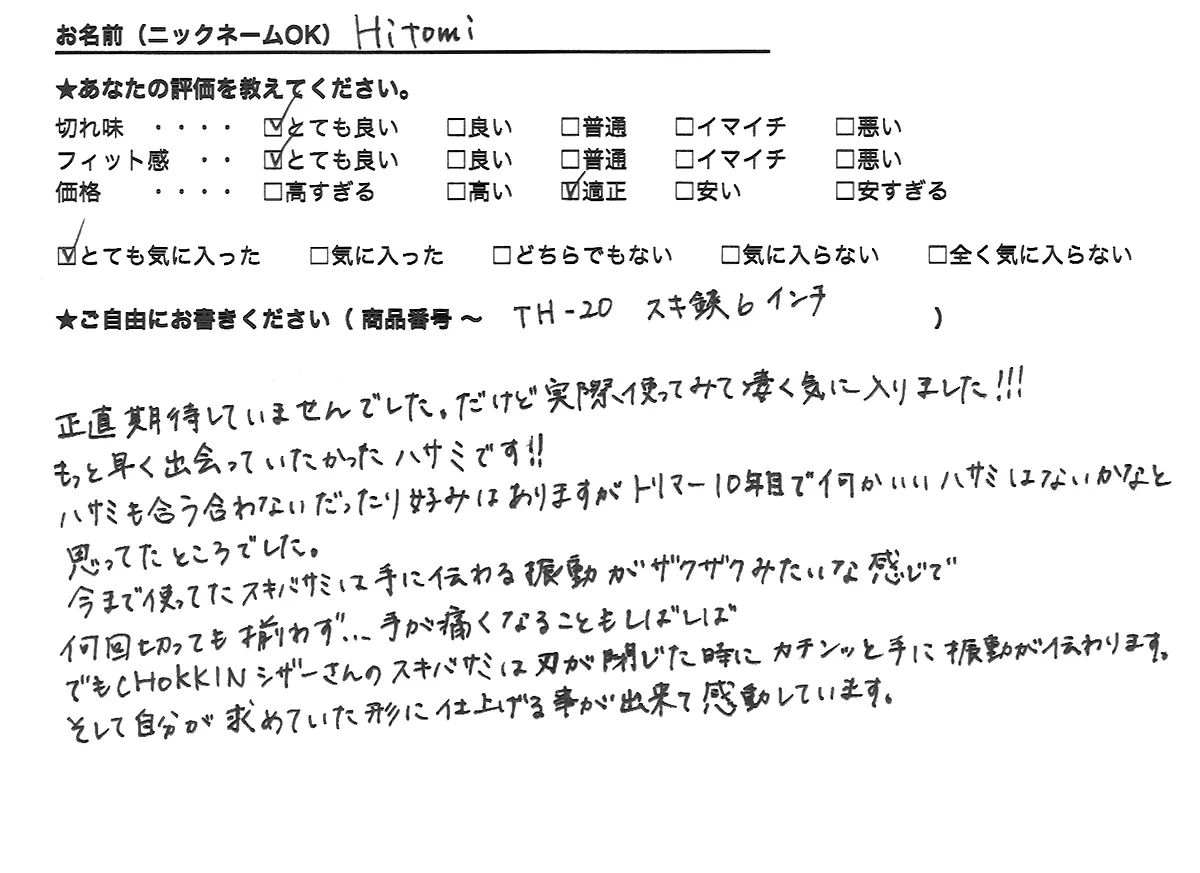 お名前（ニックネームOK） Hitomi
★あなたの評価を教えてください。
切れ味 ・・・・ ☑とても良い □良い □普通 □イマイチ □悪い
フィット感 ・・ ☑とても良い □良い □普通 □イマイチ □悪い
価格 ・・・・ □高すぎる □高い ☑適正 □安い □安すぎる
☑とても気に入った □気に入った □どちらでもない □気に入らない □全く気に入らない
★ご自由にお書きください（ 商品番号 〜 TH-20 スキ鋏6インチ ）
正直期待していませんでした。だけど実際、使ってみて凄く気に入りました!!!
もっと早く出会っていたかったハサミです!!
ハサミも合う合わないだったり好みはありますがトリマー10年目で何かいいハサミはないかなと
思ってたところでした。
今まで使ってたスキバサミは手に伝わる振動がザクザクみたいな感じで
何回切っても揃わず… 手が痛くなることもしばしば
でもCHOKKINシザーさんのスキバサミは刃が閉じた時にカチンッと手に振動が伝わります。
そして自分が求めていた形に仕上げる事が出来て感動しています。